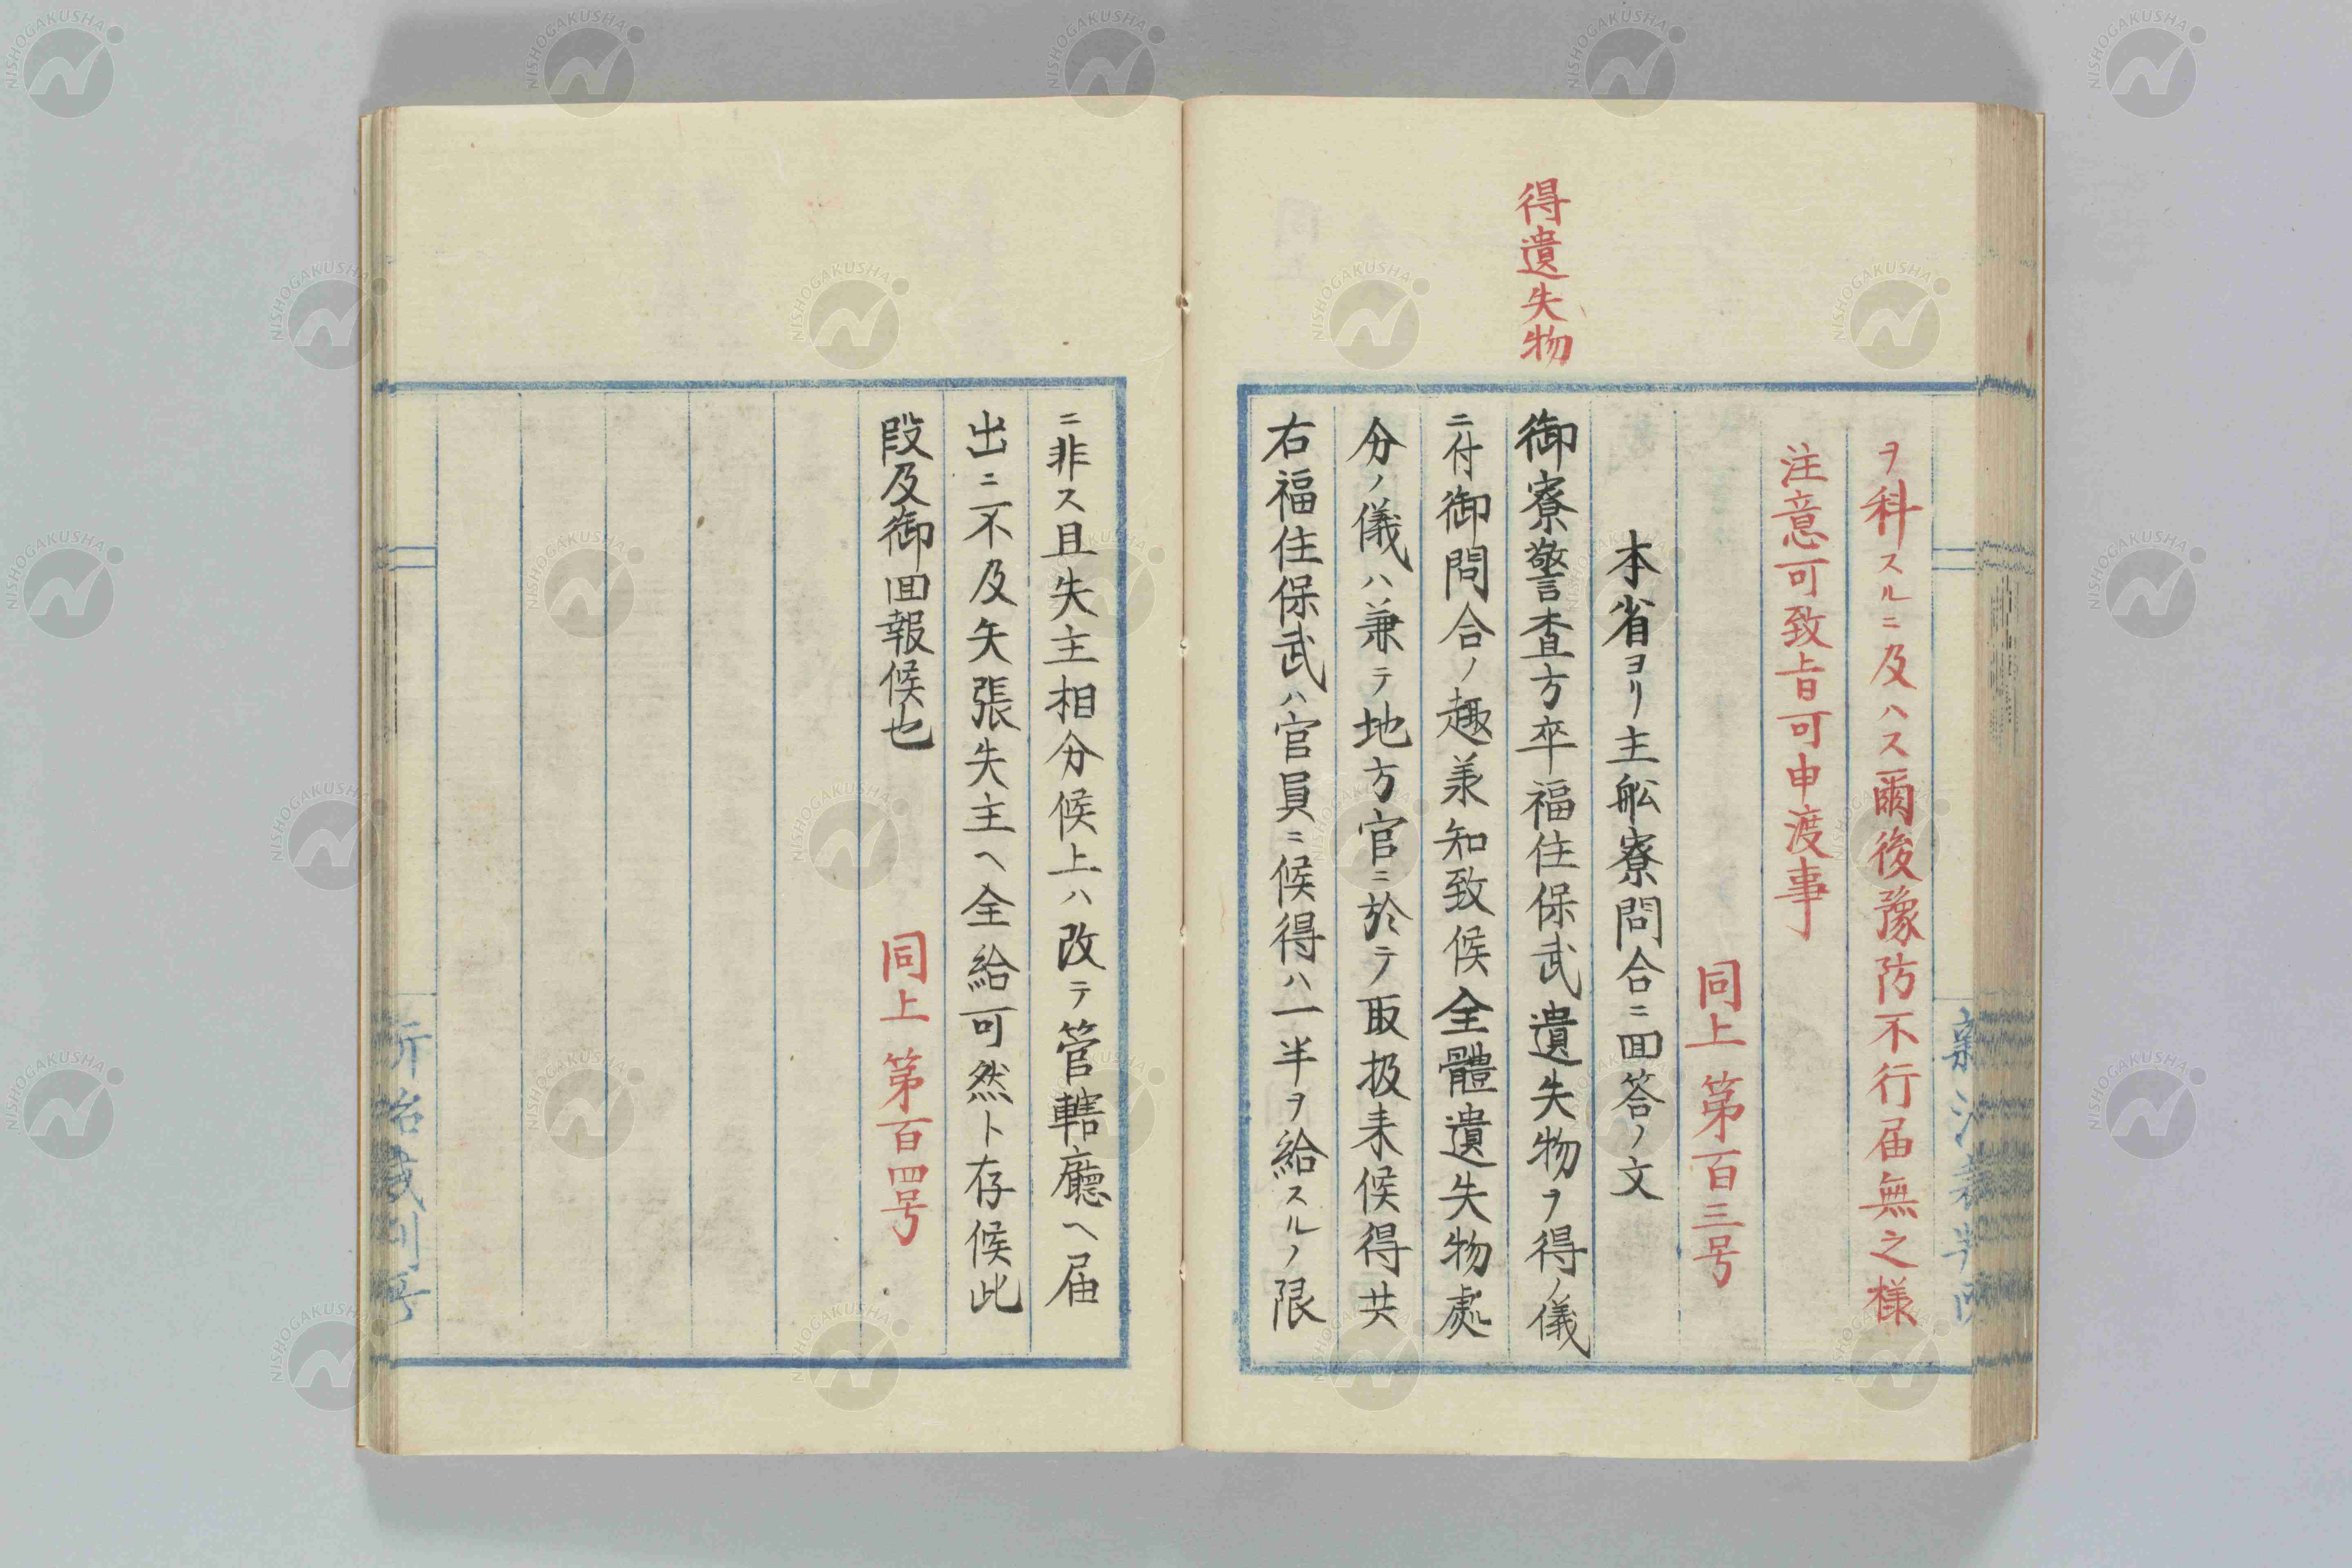 得遺失物
ヲ科スルニ及ハス爾後豫防不行届無之様
注意可致旨可申渡事
同上第百三号
本省ヨリ主舩寮問合ニ回答ノ文
御寮警査方卒福住保武遺失物ヲ得ノ儀
ニ付御問合ノ趣兼知致候全體遺失物處
分ノ儀ハ兼テ地方官ニ於テ取扱来候得共
右福住保武ハ官員ニ候得ハ一半ヲ給スルノ限
ニ非ス且失主相分候上ハ改テ管轄廳ヘ届
出ニ不及矢張失主ヘ全給可然ト存候此
段及御回報候也
同上第百四号